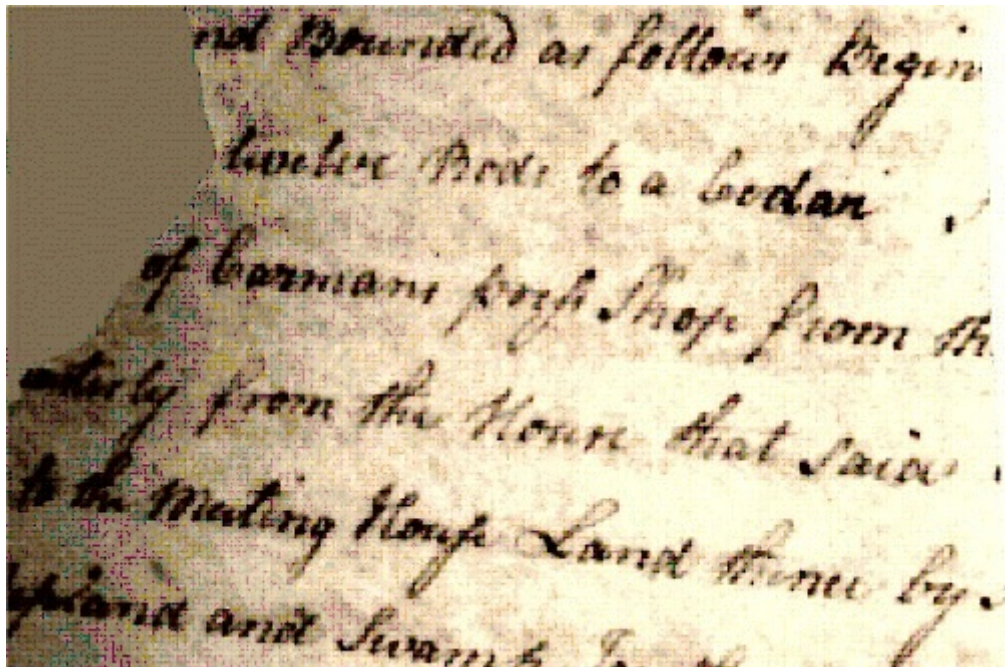 nd Bounded as follows Begin
twelve Rods to a Cedar
of Carmans Shop from th
from the House that said
to the Meeting House Land thence by
upland and Swamp To th